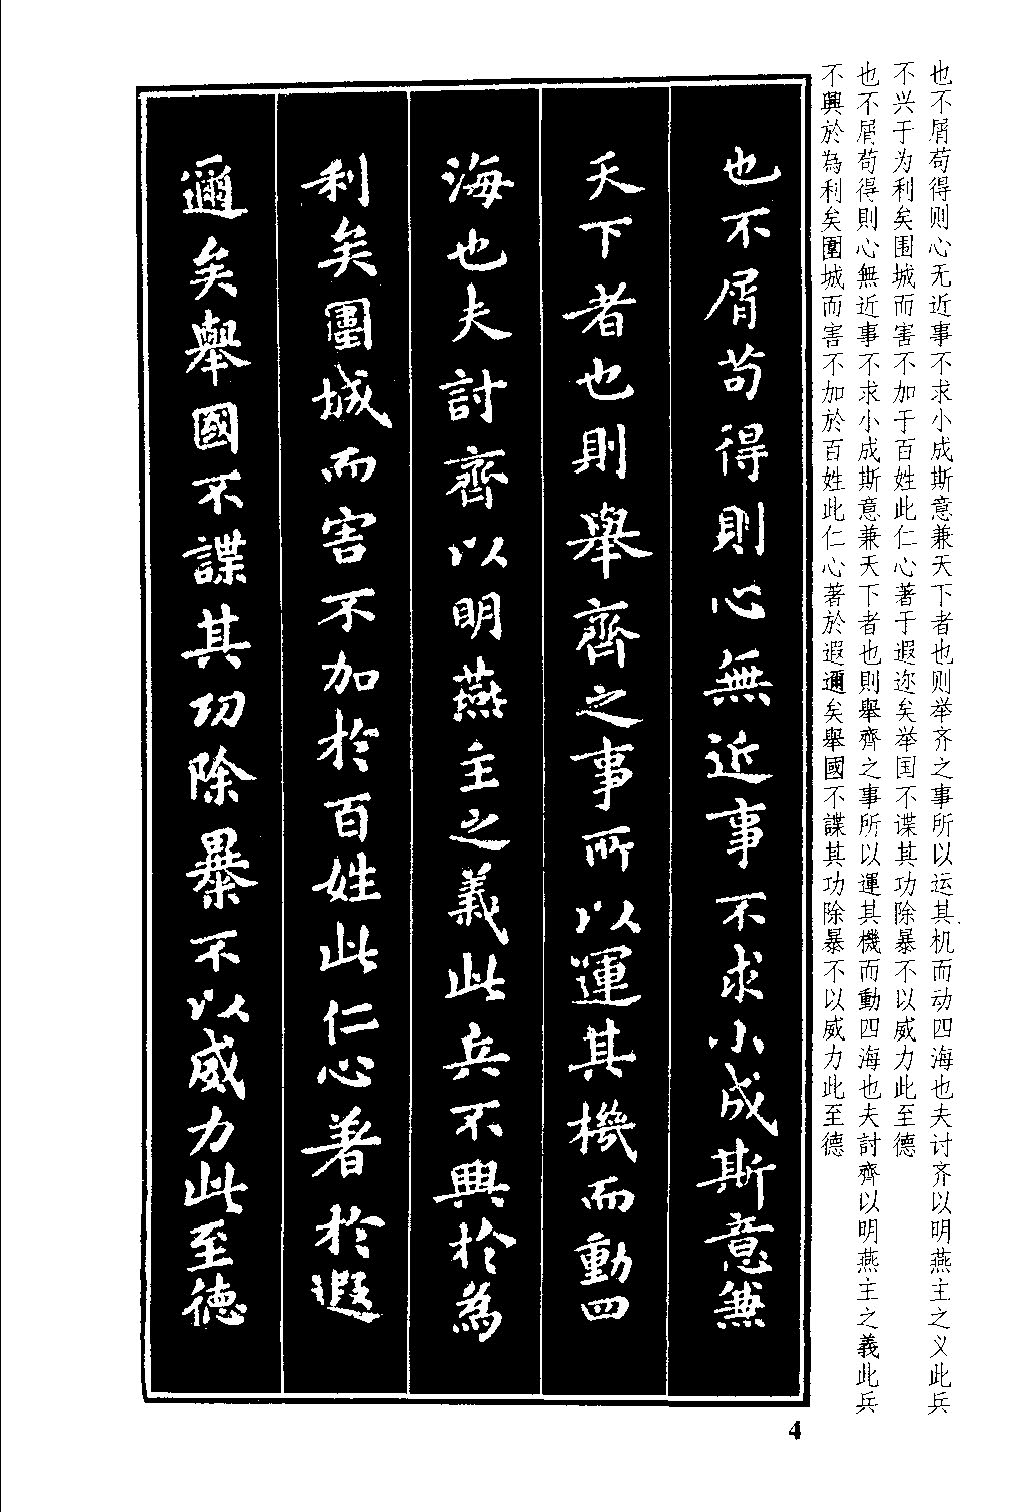 也不屑苟得则心无近事不求小成斯意兼天下者也则举齐之事所以运其机而动四海也夫讨齐以明燕主之义此兵
不兴于为利矣围城而害不加于百姓此仁心著于遐迩矣举国不谍其功除暴不以威力此至德
也不屑苟得則心無近事不求小成斯意兼天下者也則舉齊之事所以運其機而動四海也夫討齊以明燕主之義此兵
不興於為利矣圍城而害不加於百姓此仁心著於遐邇矣舉國不諜其功除暴不以威力此至德
也不屑苟得則心無近事不求小成斯意兼
天下者也則舉齊之事所以運其機而動四
海也夫討齊以明燕主之義此兵不興於為
利矣圍城而害不加於百姓此仁心著於遐
邇矣舉國不諜其功除暴不以威力此至德
4